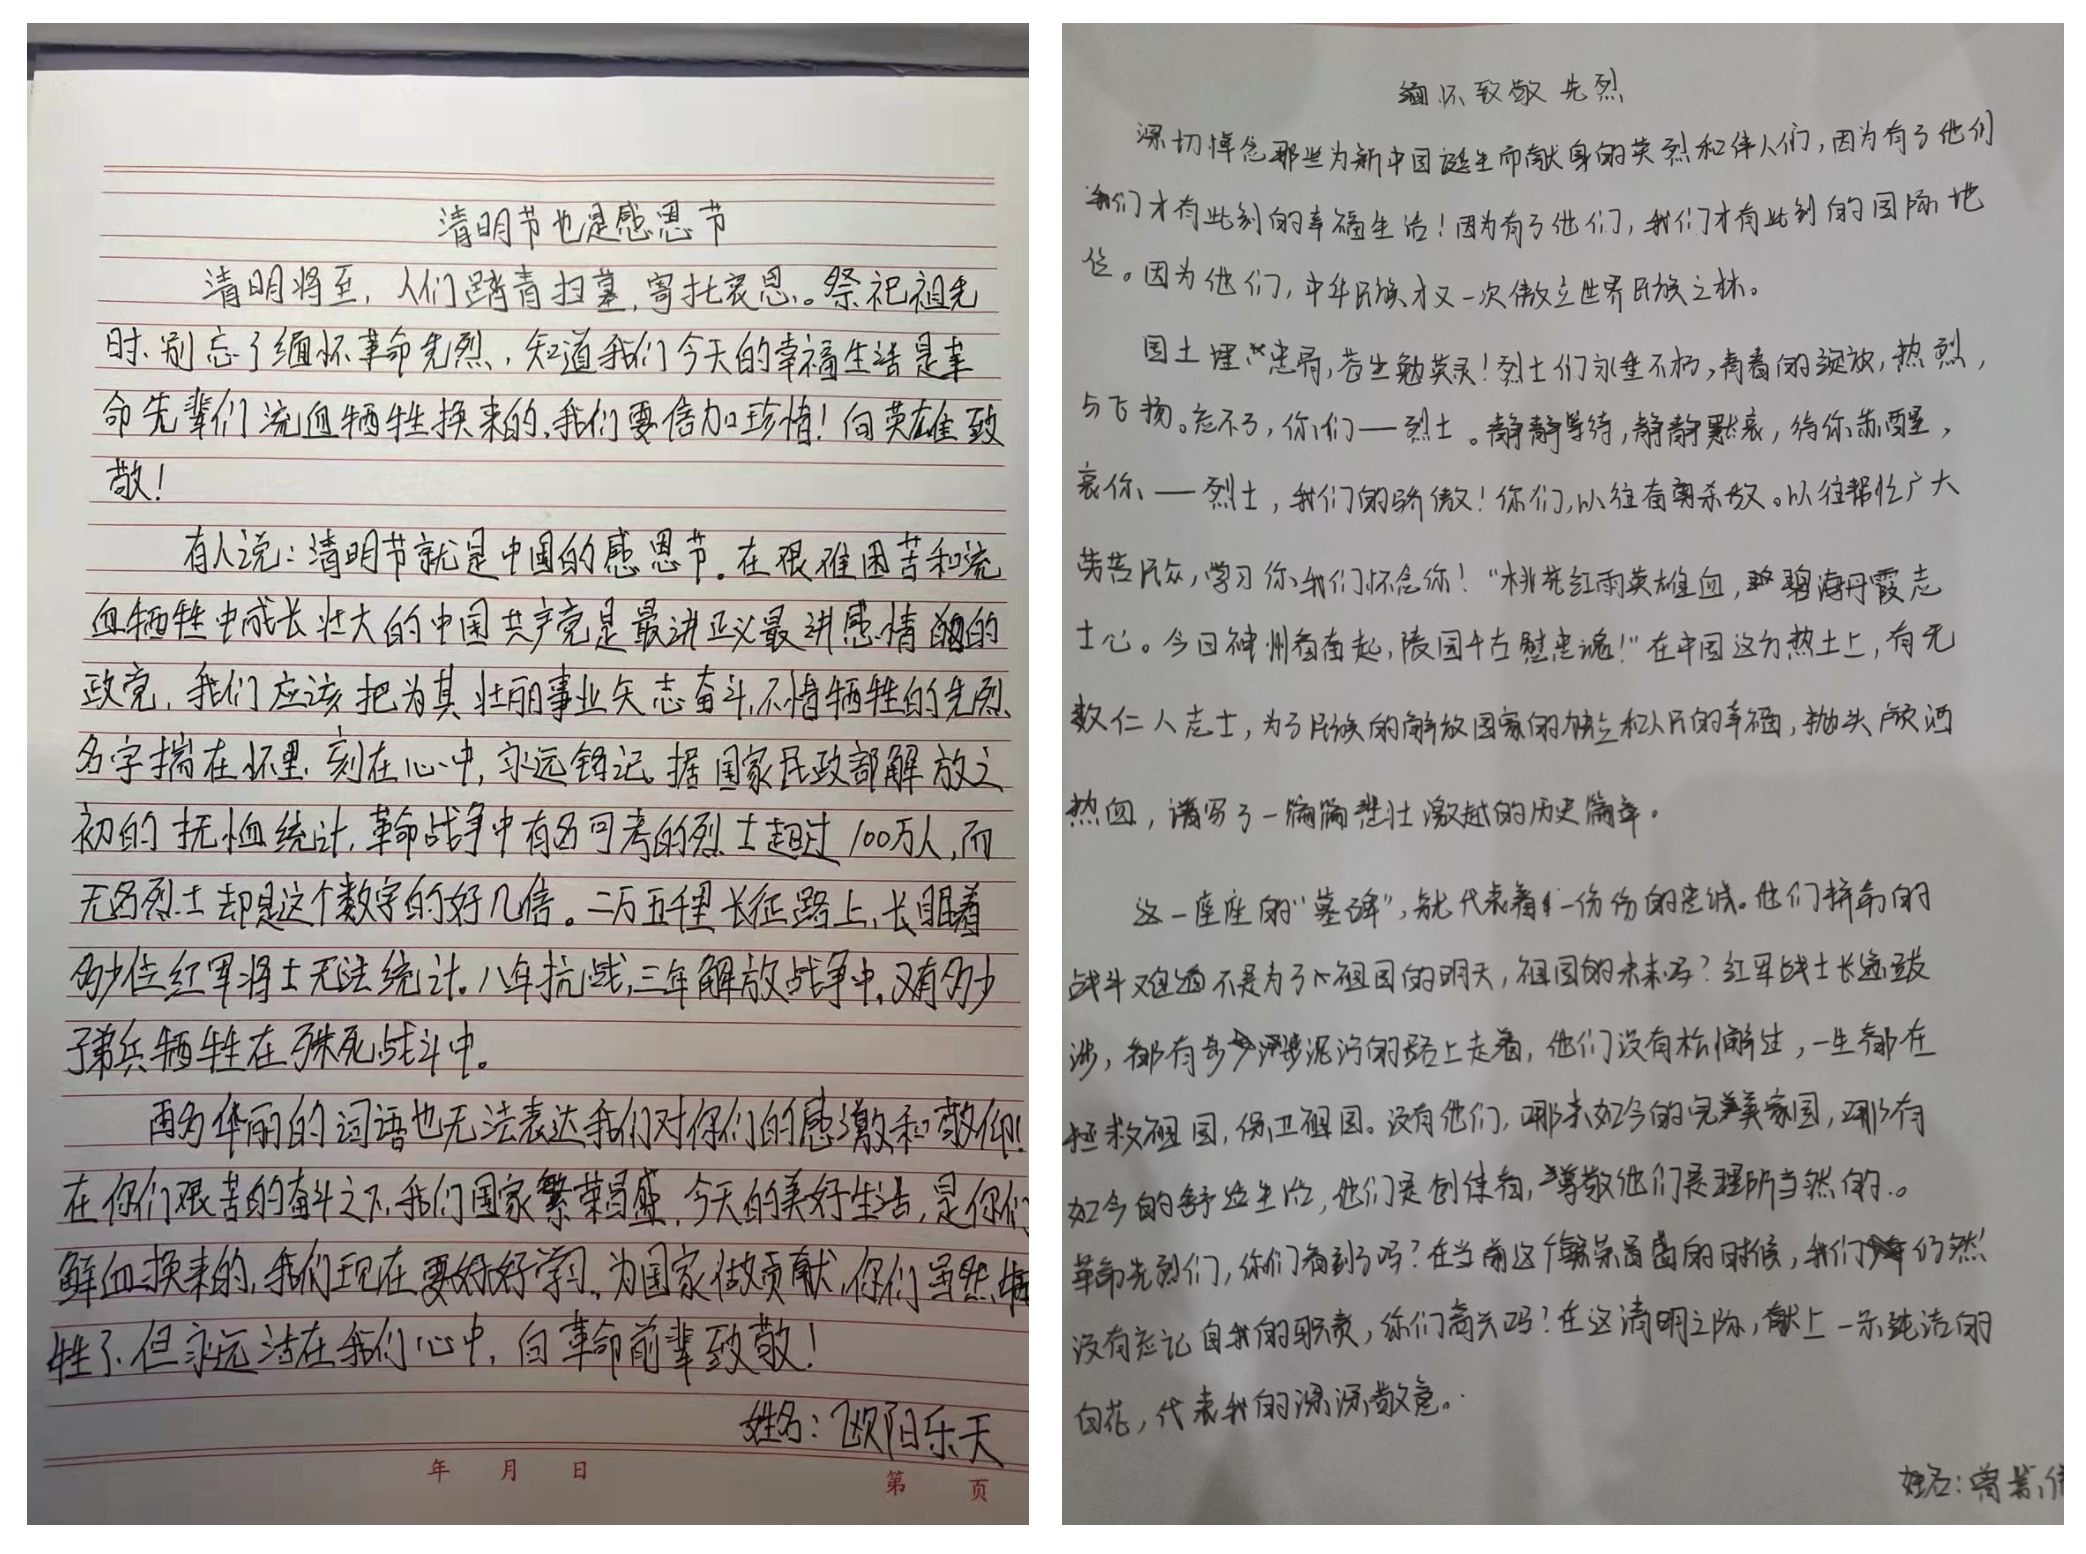 清明节也是感恩节
清明将至，人们踏青扫墓，寄托哀思。祭祀祖先
时、别忘了缅怀革命先烈、知道我们今天的幸福生活是革
命先辈们流血牺牲换来的、我们要倍加珍惜！向英雄致
敬！
有人说：清明节就是中国的感恩节。在艰难困苦和流
血牺牲中成长壮大的中国共产党是最讲正义最讲感情的
政党，我们应该把为其壮丽事业矢志奋斗、不惜牺牲的先烈、
名字揣在怀里、刻在心中，永远铭记。据国家民政部解放之
初的抚恤统计，革命战争中有名可考的烈士超过100万人，而
无名烈士却是这个数字的好几倍。二万五千里长征路上，长眠着
多少位红军将士无法统计。八年抗战，三年解放战争中，又有多少
子弟兵牺牲在殊死战斗中。
再多华丽的词语也无法表达我们对你们的感激和敬仰！
在你们艰苦的奋斗之下，我们国家繁荣昌盛，今天的美好生活，是你们
鲜血换来的，我们现在要好好学习，为国家做贡献，你们虽然牺
牲了，但永远活在我们心中，向革命前辈致敬！
姓名：欧阳乐天
年 月 日
第 页
缅怀致敬先烈
深切悼念那些为新中国诞生而献身的英烈和伟人们，因为有了他们
我们才有此刻的幸福生活！因为有了他们，我们才有此刻的国际地
位。因为他们，中华民族才又一次傲立世界民族之林。
国土埋忠骨，苍生勉英灵！烈士们永垂不朽，青春的绽放，热烈，
与飞扬。忘不了，你们——烈士。静静等待，静静默哀，待你苏醒，
哀你、——烈士，我们的骄傲！你们，以往奋勇杀敌。以往帮忙广大
劳苦民众，学习你，我们怀念你！“桃花红雨英雄血，碧海丹霞志
士心。今日神州看奋起，陵园千古慰忠魂！”在中国这方热土上，有无
数仁人志士，为了民族的解放国家的独立和人民的幸福，抛头颅洒
热血，谱写了一篇篇悲壮激越的历史篇章。
这一座座的“墓碑”，就代表着一份份的忠诚。他们拼搏的
战斗难道不是为了祖国的明天，祖国的未来吗？红军战士长途跋
涉，都有步步泥泞的路上走着，他们没有松懈过，一生都在
拯救祖国，保卫祖国。没有他们，哪来如今的完美家园，哪有
如今的舒适生活，他们是创使者，尊敬他们是理所当然的。
革命先烈们，你们看到了吗？在当前这个繁荣昌盛的时候，我们仍然
没有忘记自我的职责，你们高兴吗？在这清明之际，献上一朵纯洁的
白花，代表我的深深敬意。
姓名：曾